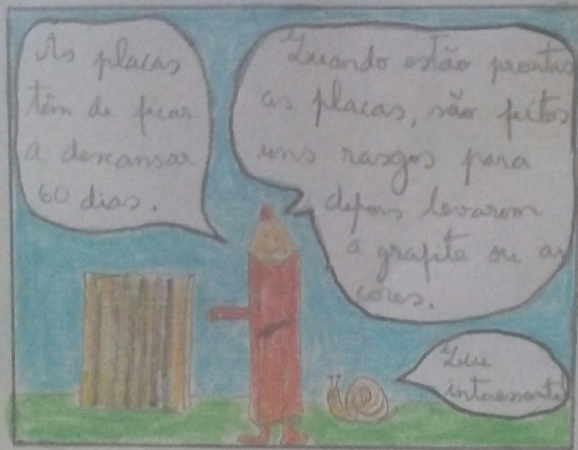 As placas
têm de ficar
a descansar
60 dias.
Quando estão prontas
as placas, são feitos
uns rasgos para
depois levarem
a grafite ou as
cores.
Que
interessante